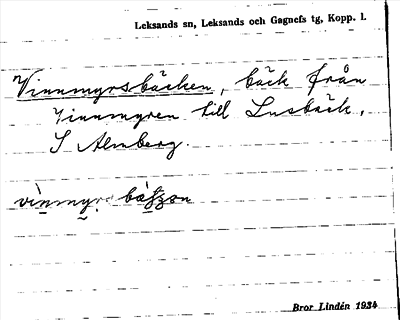 Leksands sn, Leksands och Gagnefs tg, Kopp. l.
Vinnmyrsbäcken, bäck från
Vinnmyren till Lusbäck,
S Almberg.
Bror Lindén 1934